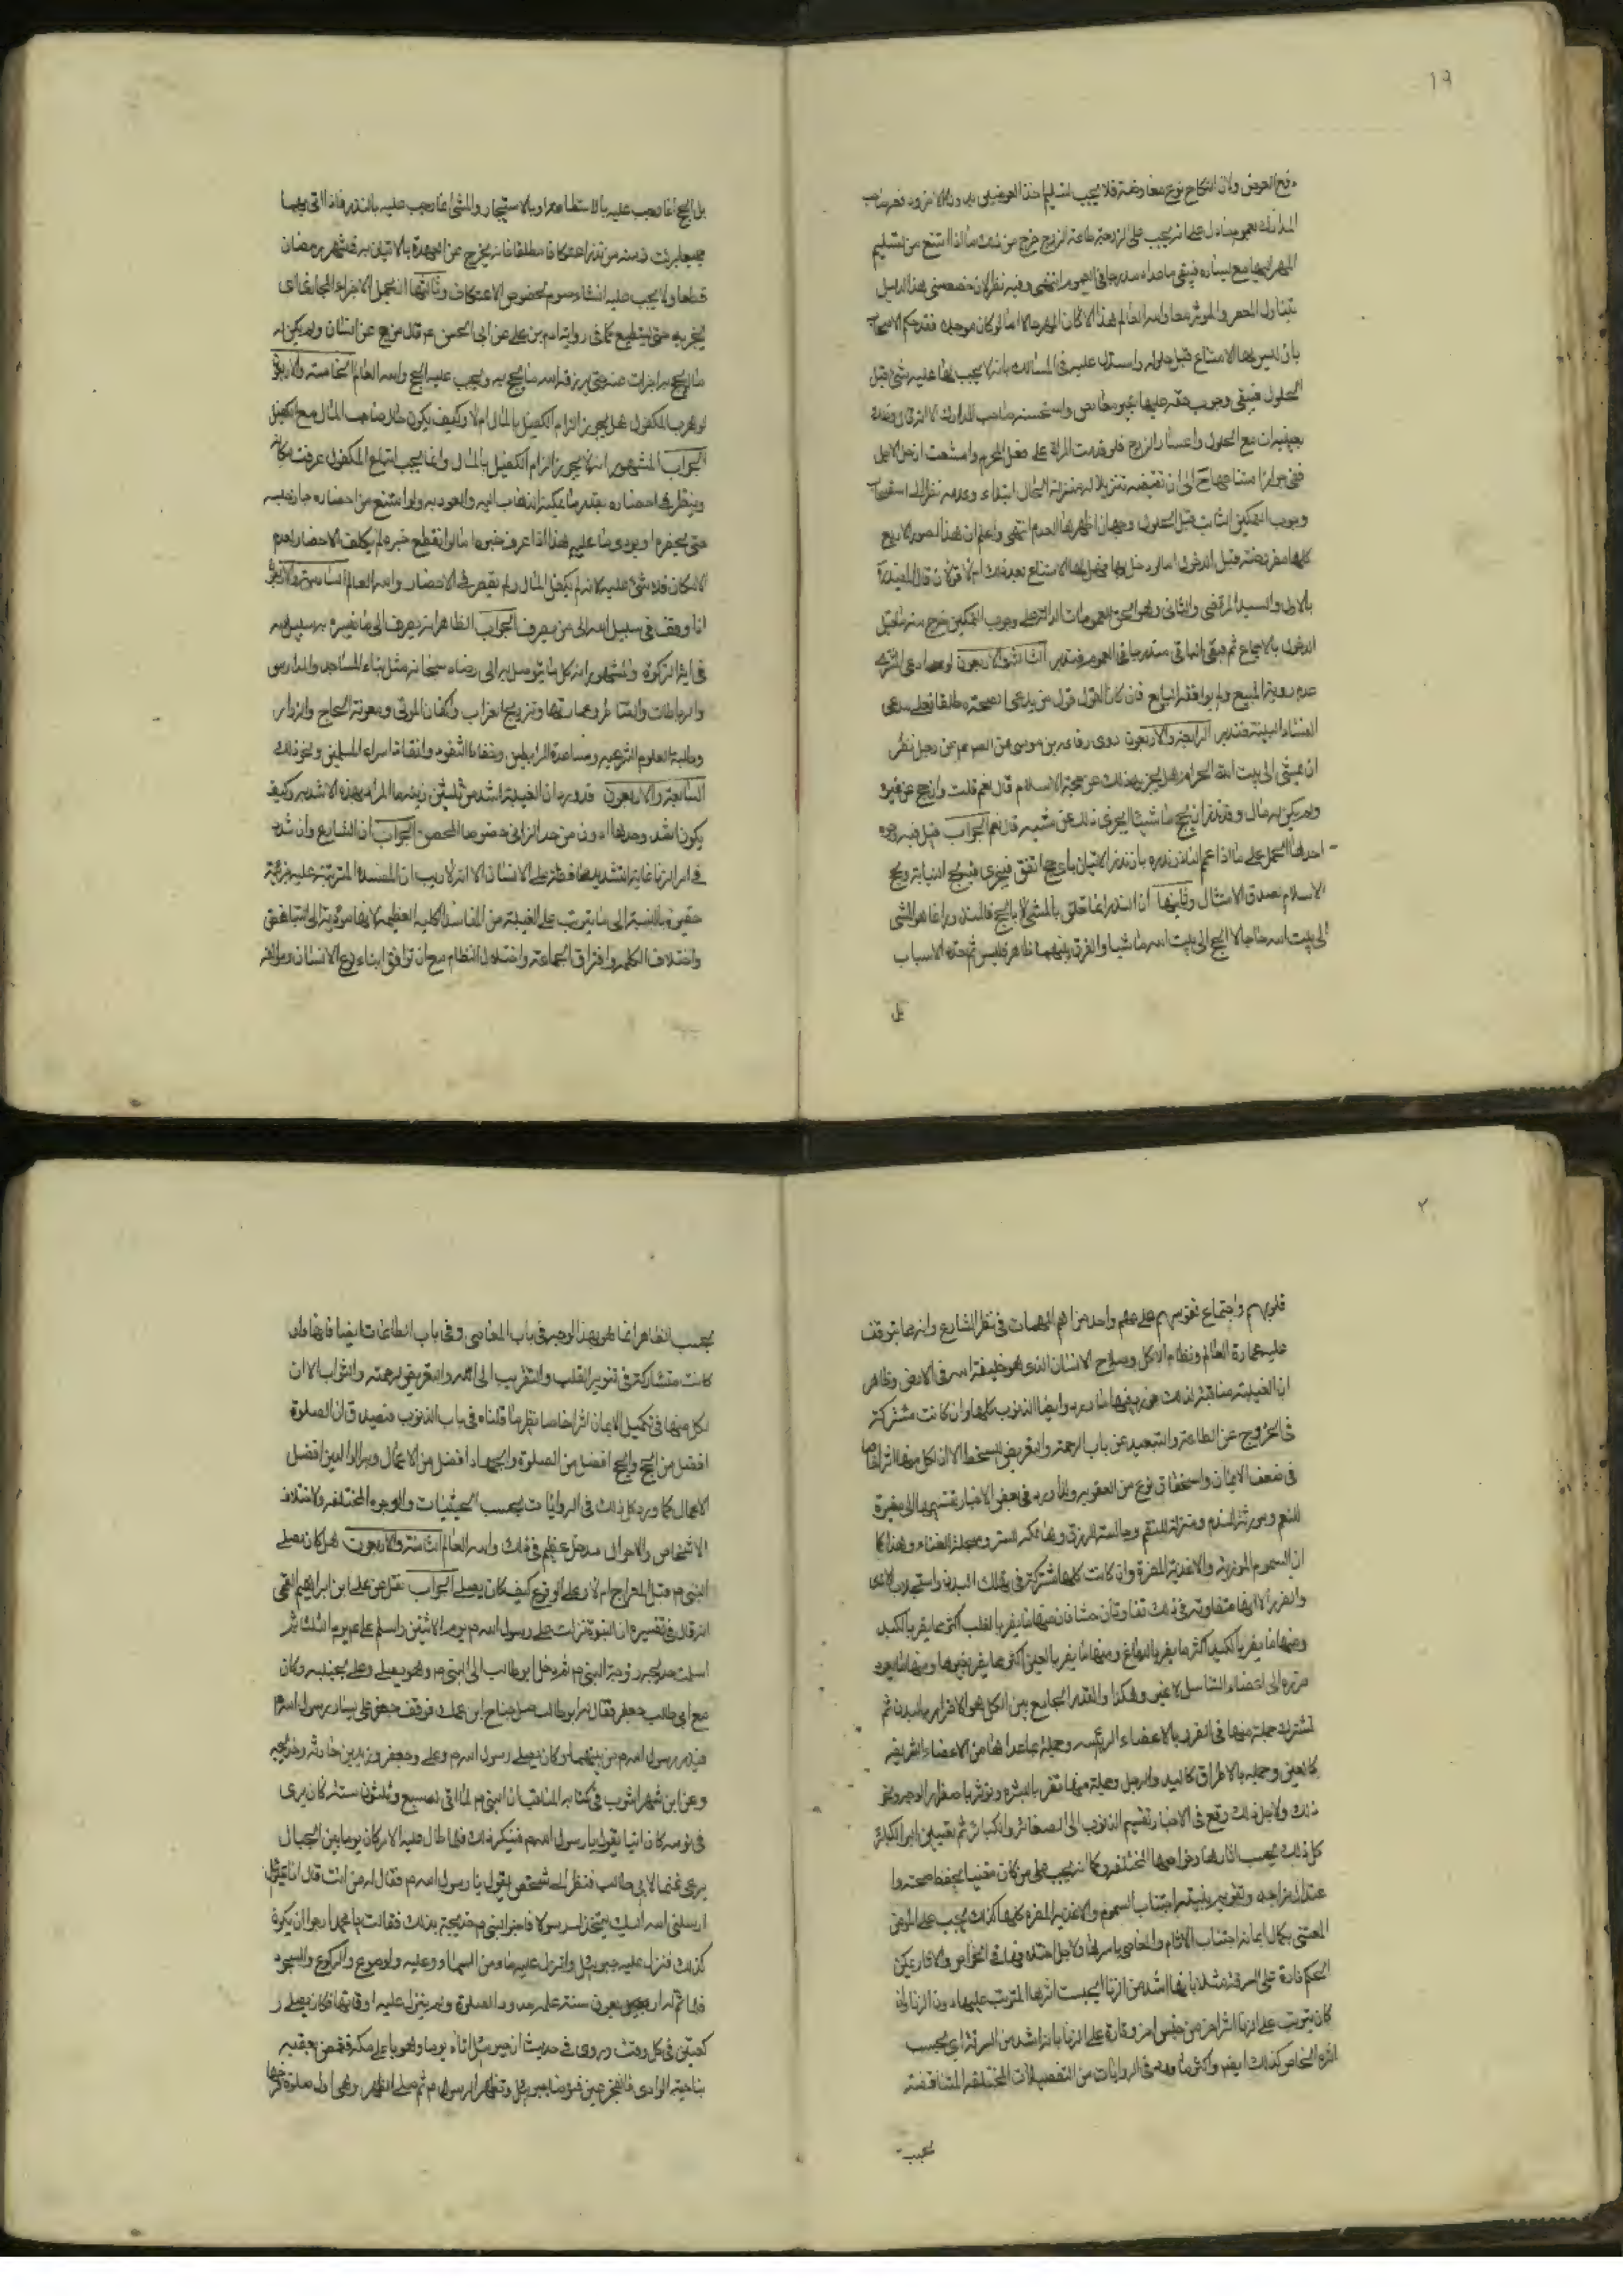 ١٩
دفع العوض ولان النكاح نوع معاوضة فلا يجب تسليم احد العوضين بدون الاخر
المدارك بعموم ما دل على انه يجب على الزوجة طاعة الزوج خرج من ذلك ما اذا امتنع من تسليم
المهر اليها مع يساره فيبقى ما عداه مندرجا في العموم انتهى وفيه نظر لان مخصصه في هذا الدليل
يتناول المعسر والموسر معا والله العالم هذا اذا كان المهر حالا اما لو كان مؤجلا فقد حكم الاصحاب
بان ليس لها الامتناع قبل حلوله واستدل عليه في المسالك بانه لا يجب لها عليه شئ قبل
الحلول فيبقى وجوب حقه عليها بغير معارض واستحسنه صاحب المدارك
الحلول واعسار الزوج فلو قدمت المراة على فعل المحرم وامتنعت الى ان حل الاجل
ففي جواز امتناعها ح الى ان تقبضه تنزيلا له منزلة الحال ابتداء وعدمه نظرا الى استصحاب
وجوب التمكين الثابت قبل الحلول وجهان اظهرهما العدم انتهى واعلم ان هذا الصور الاربع
كلها مفروضة قبل الدخول اما لو دخل بها فهل لها الامتناع بعد ذلك ام لا قولان قال المفيد
بالاول والسيد المرتضى والثاني وهو الحق للعمومات الدالة على وجوب التمكين خرج منه ما قبل
الدخول بالاجماع فيبقى الباقي مندرجا في العموم فتدبر الثالثة والاربعون لو ادعى المشتري
عدم روية المبيع ولم يوافقه البايع فان كان القول قول من يدعي الصحة مطلقا فعلى مدعي
الفساد البينة فتدبر الرابعة والاربعون روى رفاعة بن موسى عن الص عن رجل نذر
ان يمشي الى بيت الله الحرام هل يجزيه ذلك عن حجة الاسلام قال نعم قلت وان حج عن غيره
ولم يكن له مال وقد نذر ان يحج ماشيا ايجزي ذلك عن مشيه قال نعم الجواب قيل فيه وجوه
احدها الحمل على ما اذا عمم الناذر نذره بان نذر الاتيان باي حج اتفق فيجزي فيه حج النيابة وحج
الاسلام لصدق الامتثال وثانيها ان النذر انما تعلق بالمشي لا بالحج فالمنذور انما هو المشي
الى بيت الله حاجا لا الحج الى بيت الله ماشيا والفرق بينهما ظاهر فليس ثمة الاسباب
بل
بل الحج انما وجب عليه بالاستطاعة او بالاستيجار والمشي انما وجب عليه بالنذر فاذا اتى بهما
جميعا برئت ذمته من نذر اعتكافا مطلقا فانه يخرج عن العهدة بالاتيان به في شهر رمضان
قطعا ولا يجب عليه انشاء صوم لخصوص الاعتكاف وثالثها ان يحمل الاجزاء المجازي اي
يجزيه حتى يستطيع كما في رواية ادم بن علي عن ابي الحسن ع قال من حج عن انسان ولم يكن له
مال يحج به اجزات عنه حتى يرزقه الله ما يحج به ويجب عليه الحج والله العالم الخامسة والاربعون
لو هرب المكفول هل يجوز الزام الكفيل بالمال ام لا وكيف يكون حال صاحب المال مع الكفيل
الجواب المشهور انه لا يجوز الزام الكفيل بالمال وانما يجب اتباع المكفول ان عرفت مكانه
وينظر في احضاره بقدر ما يمكن الذهاب اليه والعود به ولو امتنع من احضاره جاز حبسه
حتى يحضره او يؤدي ما عليه هذا اذا عرف خبره اما لو انقطع خبره لم يكلف الاحضار لعدم
الامكان فلا شئ عليه لانه لم يكفل المال ولم يقصر في الاحضار والله العالم السادسة والاربعون
اذا وقف في سبيل الله الى من يصرف الجواب الظاهر انه يصرف الى ما يصرف به سبيل الله
في اية الزكوة والمشهور انه كل ما يتوصل به الى رضاه سبحانه مثل بناء المساجد والمدارس
والرباطات والقناطر وعمارتها وتزويج العزاب واكفان الموتى ومعونة الحجاج والزوار
وطلبة العلوم الشرعية ومساعدة المرابطين وحفاظ الثغور وانقاذ اسراء المسلمين ونحو ذلك
السابعة والاربعون قد ورد ان الغيبة اشد من ثلثين زنية ما المراد بهذه الاشدية وكيف
يكون اشد وحدها ادون من حد الزاني خصوصا المحصن الجواب ان الشارع وان شدد
في امر الزنا غاية التشديد محافظة على الانسان الا انه لا ريب ان المفسدة المترتبة عليه جزئية
حقيرة بالنسبة الى ما يترتب على الغيبة من المفاسد الكلية العظيمة لانها مؤدية الى التباغض
واختلاف الكلمة وافتراق الجماعة واختلال النظام مع ان توافق ابناء نوع الانسان
٢
قلوبهم واجتماع نفوسهم على هم واحد من اهم المهمات في نظر الشارع وانه مما يتوقف
عليه عمارة العالم ونظام الكل وصلاح الانسان الذي هو خليفة الله في الارض وظاهر
ان الغيبة مناقضة لذلك من يفهمها وايضا الذنوب كلها وان كانت مشتركة
في الخروج عن الطاعة والتبعيد عن باب الرحمة والتعريض للسخط الا ان لكل منها اثرا خاصا
في ضعف الايمان واستحقاق نوع من العقوبة ولذا ورد في بعض الاخبار تقسيمها الى مغيرة
للنعم ومورثة للندم ومنزلة للنقم وحابسة للرزق وهاتكة للستر ومعجلة للفناء وهذا كما
ان السموم الموذية والاغذية المضرة وان كانت كلها مشتركة في هلاك البدن
والضرر الا انها متفاوتة في ذلك تفاوتا فاحشا فان منها ما يضر بالقلب اكثر مما يضر بالكبد
ومنها ما يضر بالكبد اكثر مما يضر بالدماغ ومنها ما يضر بالعين اكثر مما يضر بغيرها ومنها ما يعود
ضرره الى اعضاء التناسل لا غير وهكذا والقدر الجامع بين الكل هو الاضرار بالبدن ثم
تشترك جملة منها في الضرر بالاعضاء الرئيسه وجملة بما عداها من الاعضاء الشريفة
كالعين وجملة بالاطراف كاليد والرجل وجملة منها تضر بالبشرة وتؤثر باصفرار الوجه ونحو
ذلك ولاجل ذلك وقع في الاخبار تقسيم الذنوب الى الصغائر والكبائر ثم تعيين اكبر الكبائر
كل ذلك بحسب اثارها وخواصها المختلفة وكما انه يجب على من كان معتنيا بحفظ صحته
اعتدال مزاجه وتقويم بنيته اجتناب السموم والاغذية المضرة كلها كذلك يجب على المؤمن
المعتني بكمال ايمانه اجتناب الاثام والمعاصي باسرها ولاجل اختلافها في الخواص والاثار يمكن
الحكم تارة على السرقة مثلا بانها اشد من الزنا بحسب اثرها المترتب عليها دون الزنا وان
كان يترتب على الزنا اثر اخر من جنس اخر وتارة على الزنا بانه اشد من السرقة اي بحسب
اثره الخاص كذلك ايضا واكثر ما ورد في الروايات من التفضيلات المختلفة المتناقضة
بحسب
بحسب الظاهر انما هو بهذا الوجه في باب المعاصي وفي باب الطاعات ايضا فانها وان
كانت متشاركة في تنوير القلب والتقريب الى الله والتعريض لرحمته والثواب الا ان
لكل منها في تكميل الايمان اثرا خاصا نظير ما قلناه في باب الذنوب فيصدق ان الصلوة
افضل من الحج والحج افضل من الصلوة والجهاد افضل من الاعمال وبر الوالدين افضل
الاعمال كما ورد كل ذلك في الروايات بحسب الحيثيات والوجوه المختلفة ولاختلاف
الاشخاص والاحوال مدخل عظيم في ذلك والله العالم الثامنة والاربعون هل كان يصلي
النبي ص قبل المعراج ام لا وعلى الوقوع كيف كان يصلي الجواب نقل عن علي ابن ابراهيم القمي
انه قال في تفسيره ان النبوة نزلت على رسول الله ص يوم الاثنين واسلم علي ع يوم الثلثاء ثم
اسلمت خديجة زوجة النبي ص ثم دخل ابو طالب الى النبي ص وهو يصلي وعلي بجنبه وكان
مع ابي طالب جعفر فقال له ابو طالب صل جناح ابن عمك فوقف جعفر على يسار رسول الله ص
فبدر رسول الله ص من بينهما وكان يصلي رسول الله ص وعلي وجعفر وزيد بن حارثة وخديجة
وعن ابن شهر اشوب في كتابه المناقب ان النبي ص لما اتى له سبع وثلثون سنة كان يرى
في نومه كان اتيا يقول يا رسول الله ص فينكر ذلك فلما طال عليه الامر كان يوما بين الجبال
يرعى غنما لابي طالب فنظر الى شخص يقول يا رسول الله ص فقال له من انت قال انا جبرئيل
ارسلني الله اليك ليتخذك رسولا فاخبر النبي ص خديجة بذلك فقالت يا محمد ارجو ان يكون
كذلك فنزل عليه جبرئيل وانزل عليه ماء من السماء وعلمه الوضوء والركوع والسجود
فلما تم له اربعون سنة علمه حدود الصلوة ولم ينزل عليه اوقاتها فكان يصلي ر
كعتين في كل وقت وروي في حديث ان جبرئيل اتاه يوما وهو باعلى مكة فغمز بعقبه
بناحية الوادي فانفجر عين فتوضا جبرئيل وتطهر الرسول ص ثم صلى الظهر وهي اول صلوة فرضها